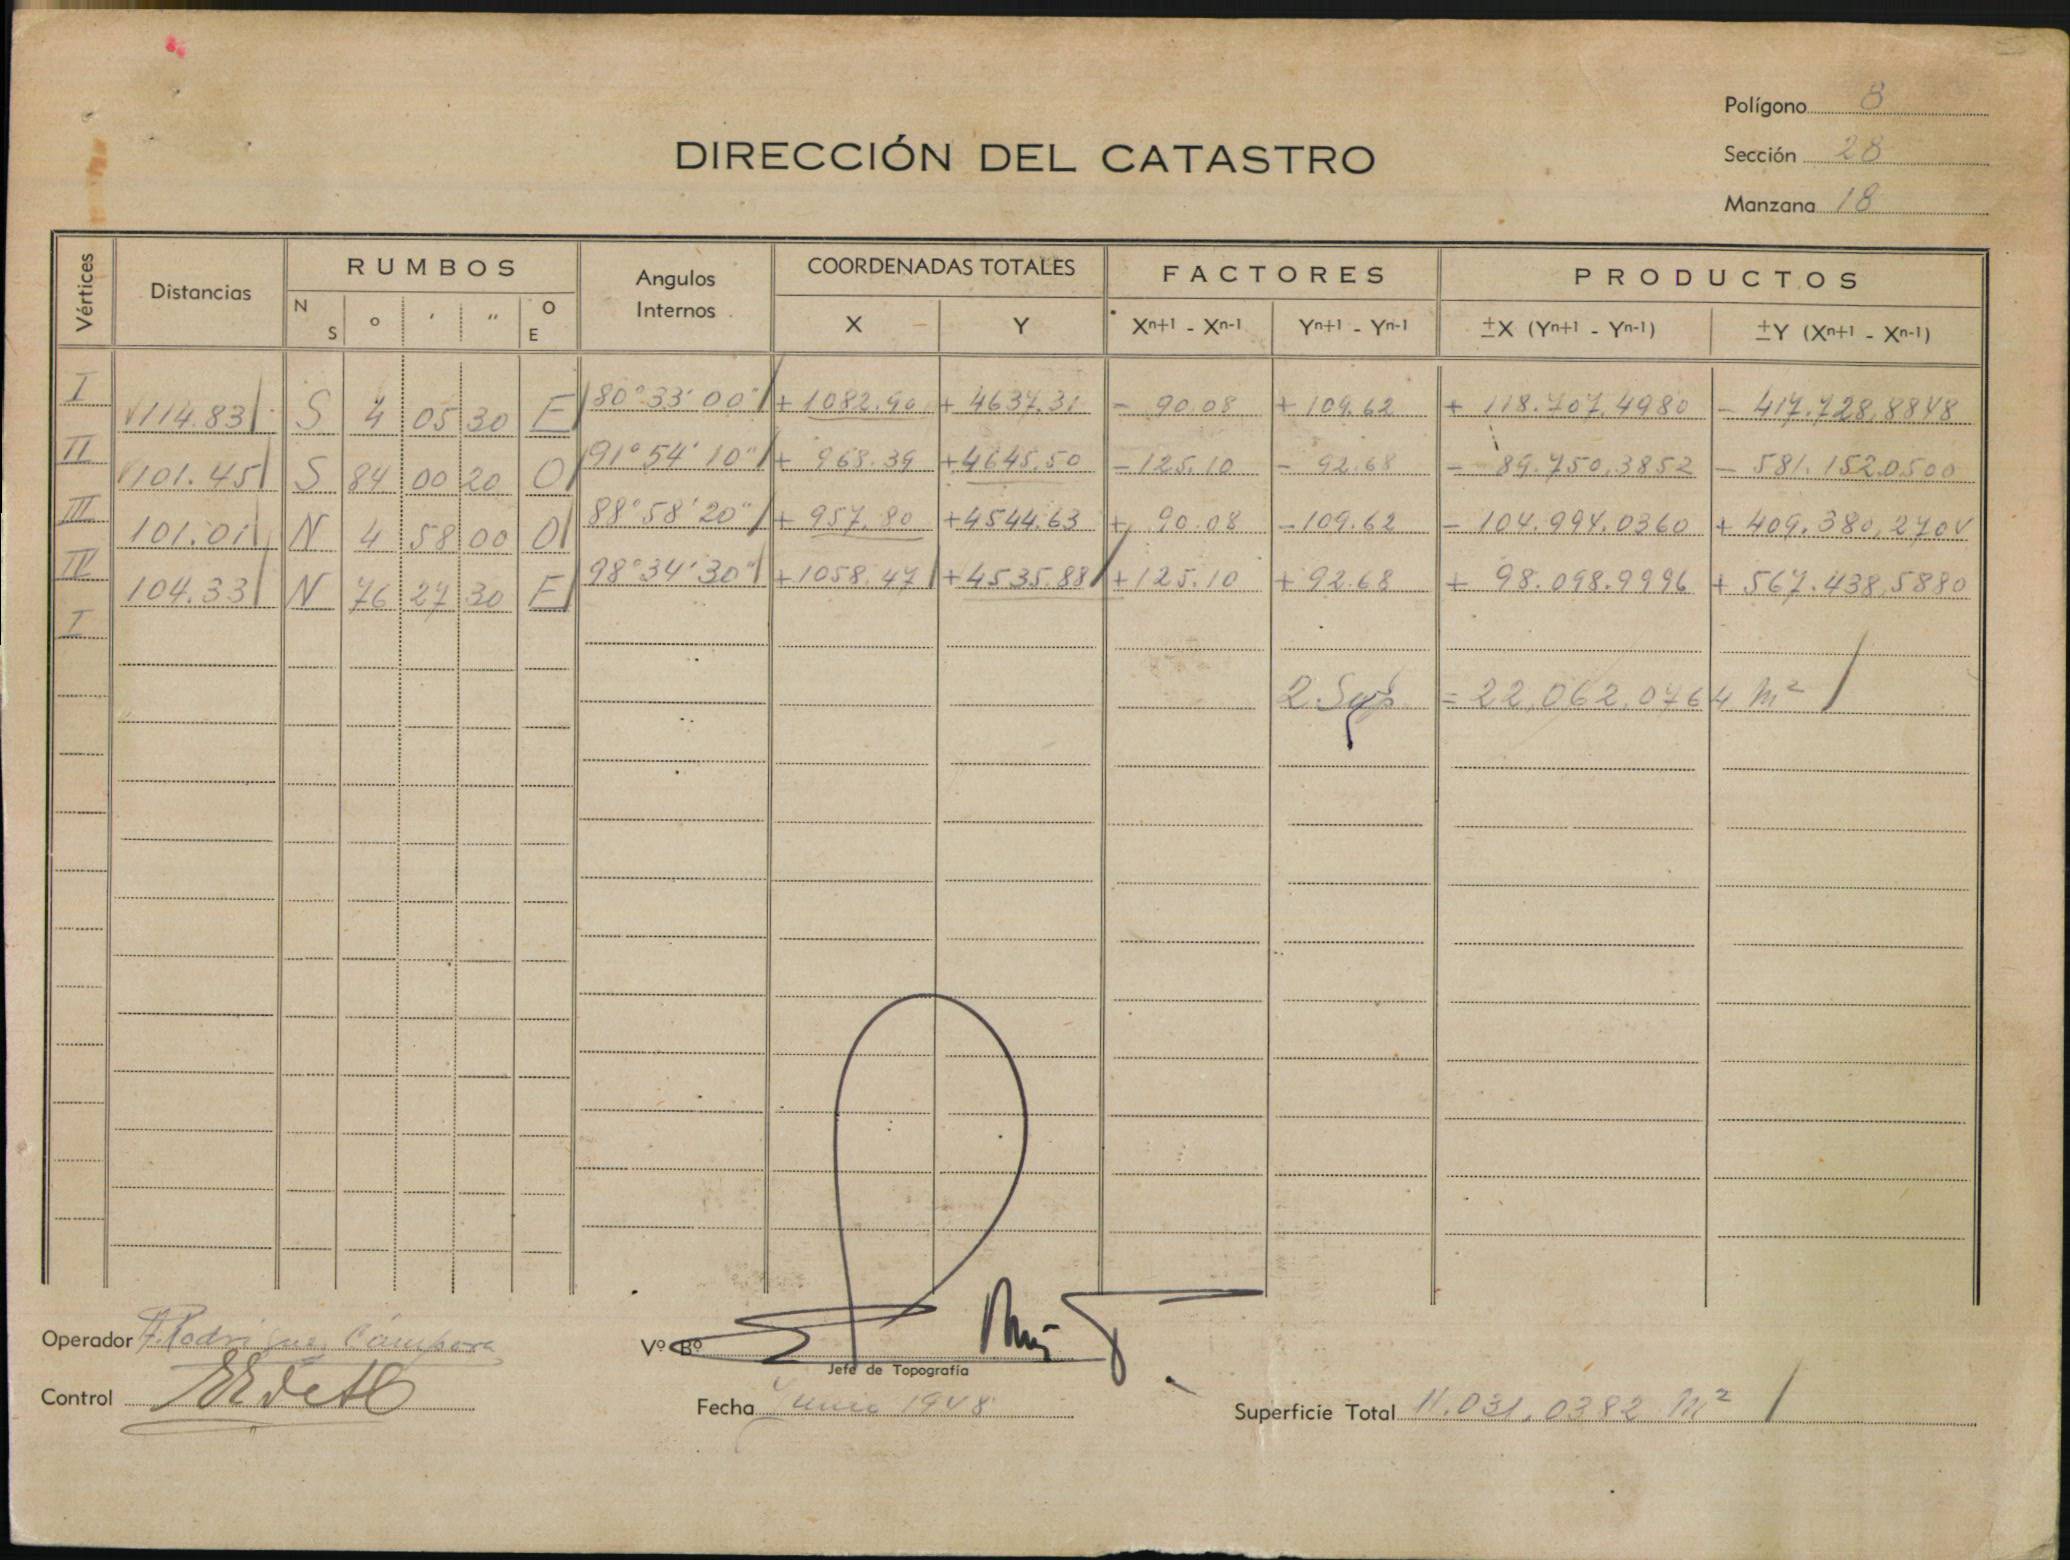 Polígono 8
DIRECCIÓN DEL CATASTRO
Sección 28
Manzana 18
Vértices Distancias RUMBOS Angulos Internos COORDENADAS TOTALES FACTORES PRODUCTOS
N S ° ' " O E X Y Xn+1 - Xn-1 Yn+1 - Yn-1 ±X (Yn+1 - Yn-1) ±Y (Xn+1 - Xn-1)
I 114.83 S 4 05 30 E 80° 33' 00" + 1082.90 + 4637.31 - 90.08 + 109.62 + 118.707,4980 - 417.728,8848
II 101.45 S 84 00 20 O 91° 54' 10" + 968.39 + 4645.50 - 125.10 - 92.68 - 89.750,3852 - 581.152.0500
III 101.01 N 4 58 00 O 88° 58' 20" + 957.80 + 4544.63 + 90.08 - 109.62 - 104.994.0360 + 409.380,2704
IV 104.33 N 76 27 30 E 98° 34' 30" + 1058.47 + 4535.88 + 125.10 + 92.68 + 98.098.9996 + 567.438,5880
I
2 Sup. = 22,062.0764 m²
Operador F. Rodriguez Cámpora
Vº Bº
Jefe de Topografía
Control
Fecha Junio 1948
Superficie Total 11.031.0382 m²